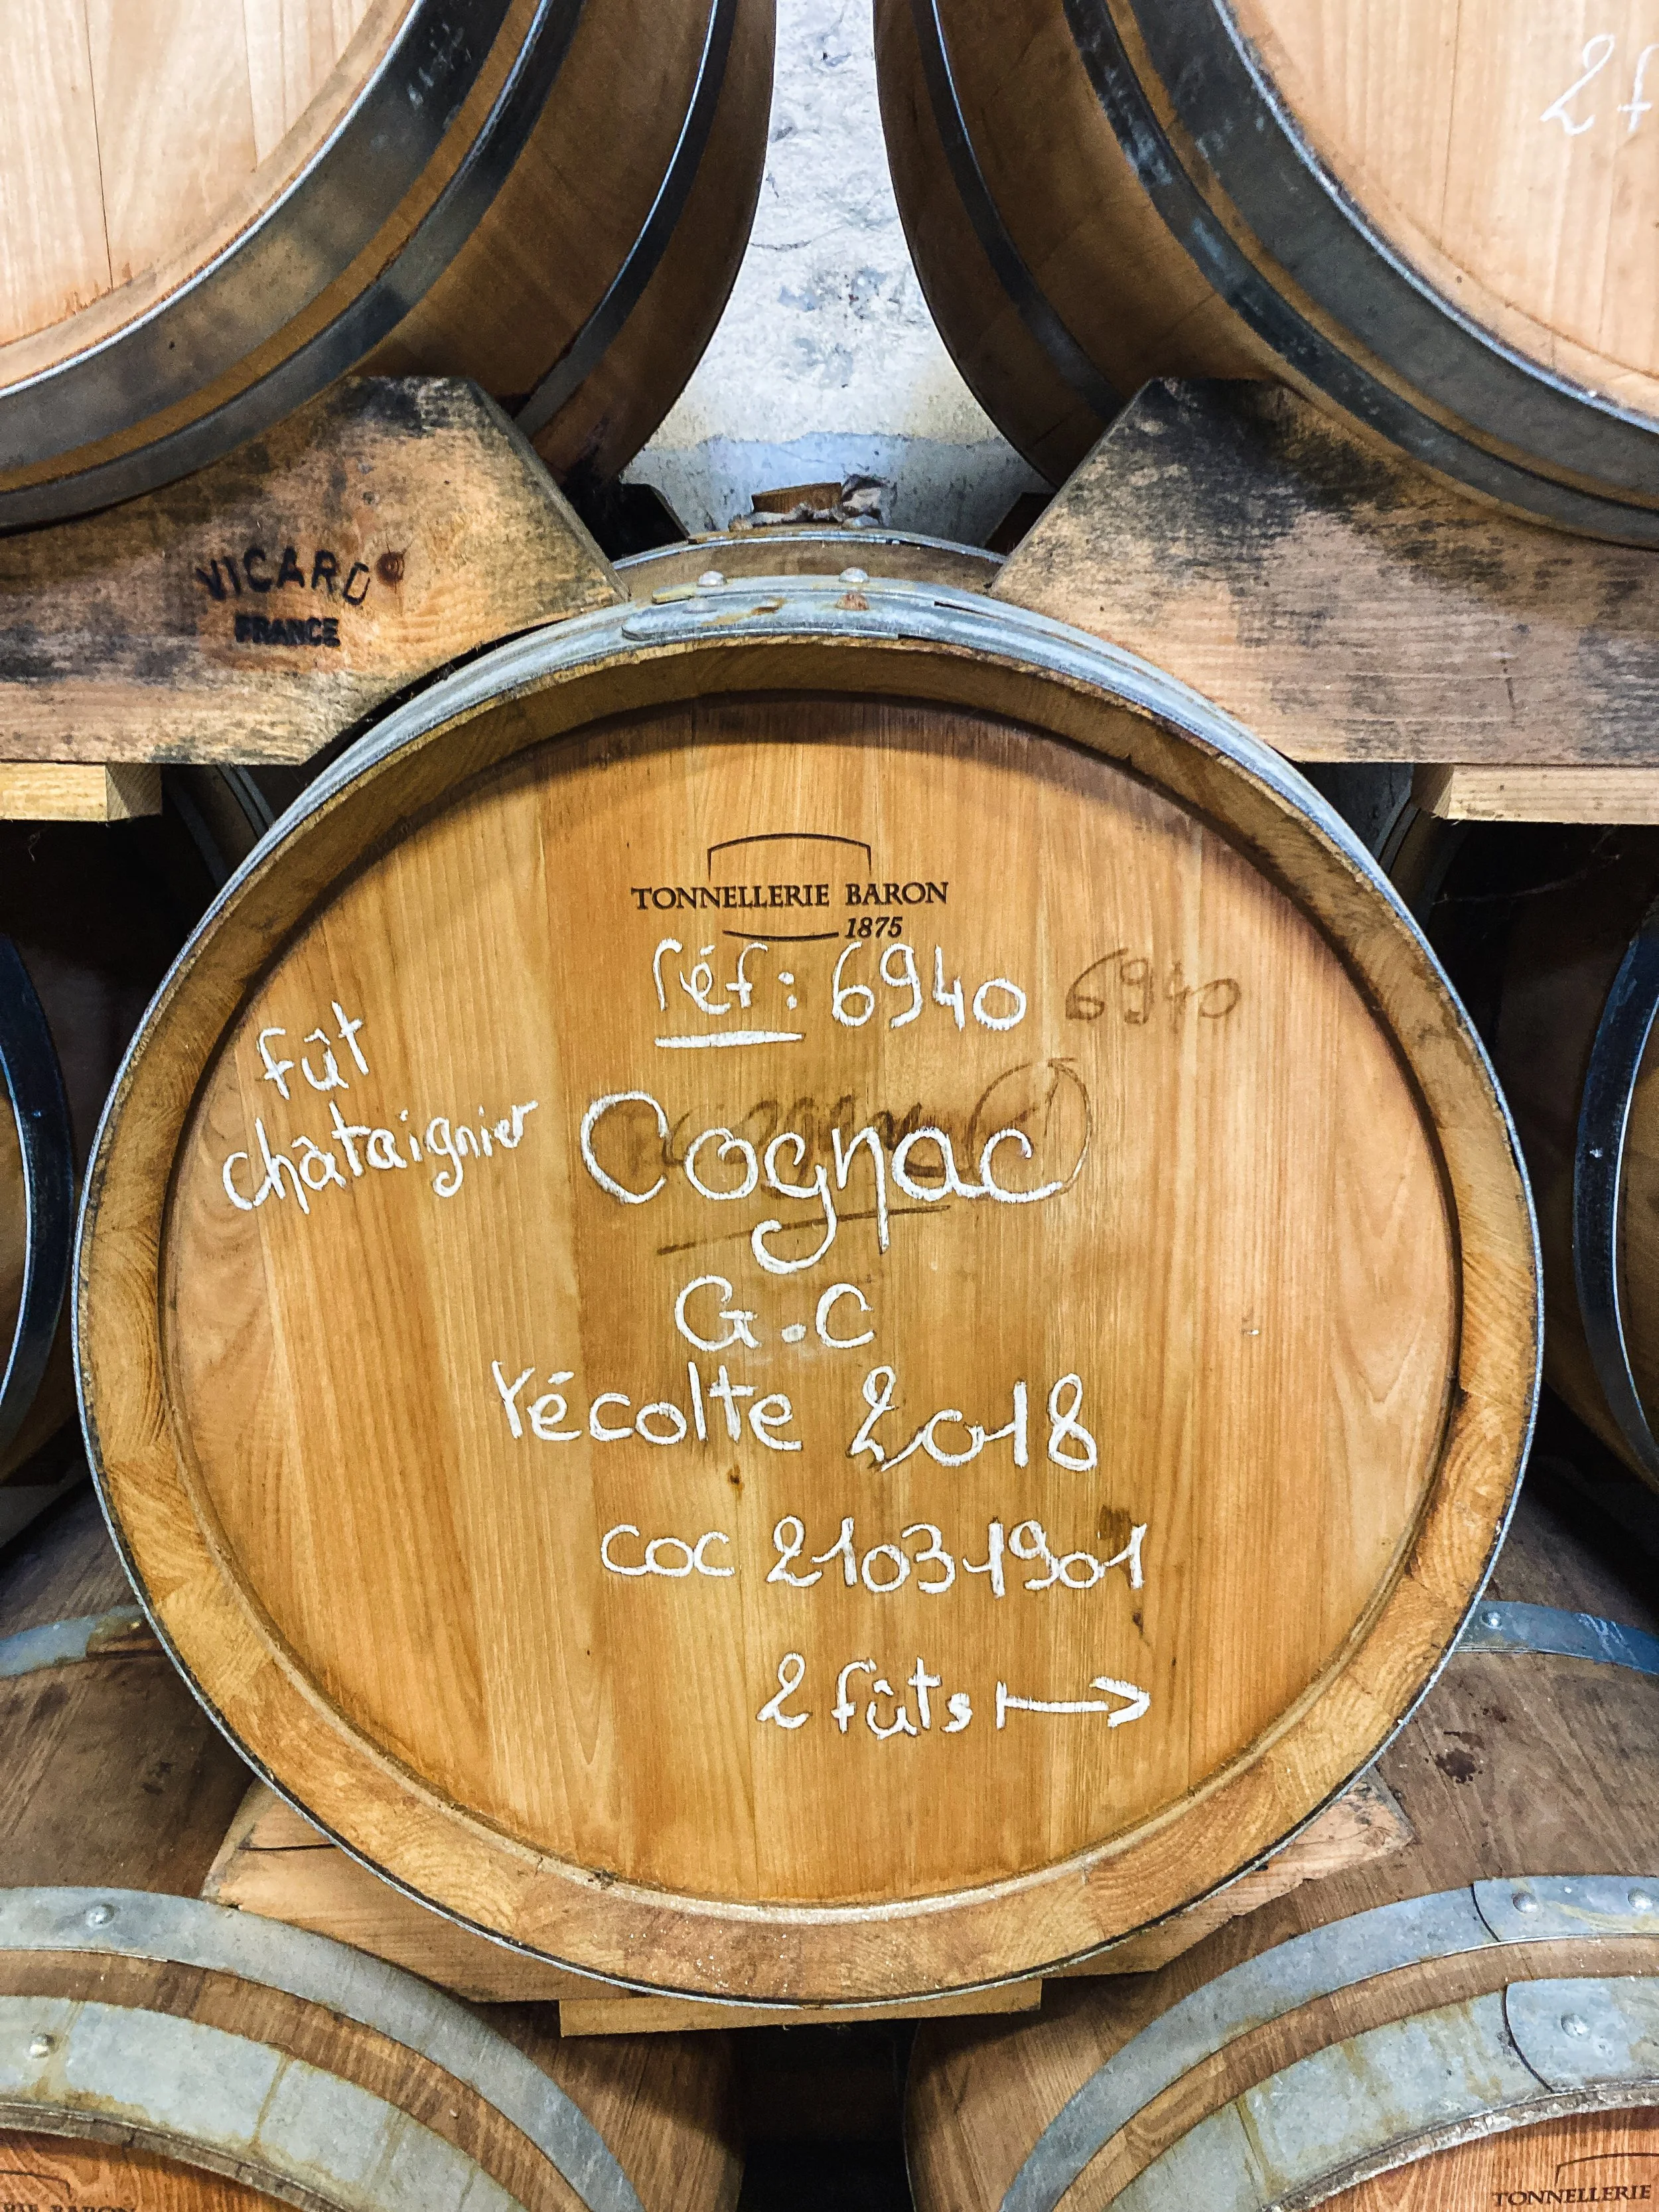 2 f
VICARD
FRANCE
TONNELLERIE BARON
1875
réf: 6940
6940
fût
châtaignier
Cognac
G.C
récolte 2018
coc 21031901
2 fûts
RIE BARON
TONNELLERIE